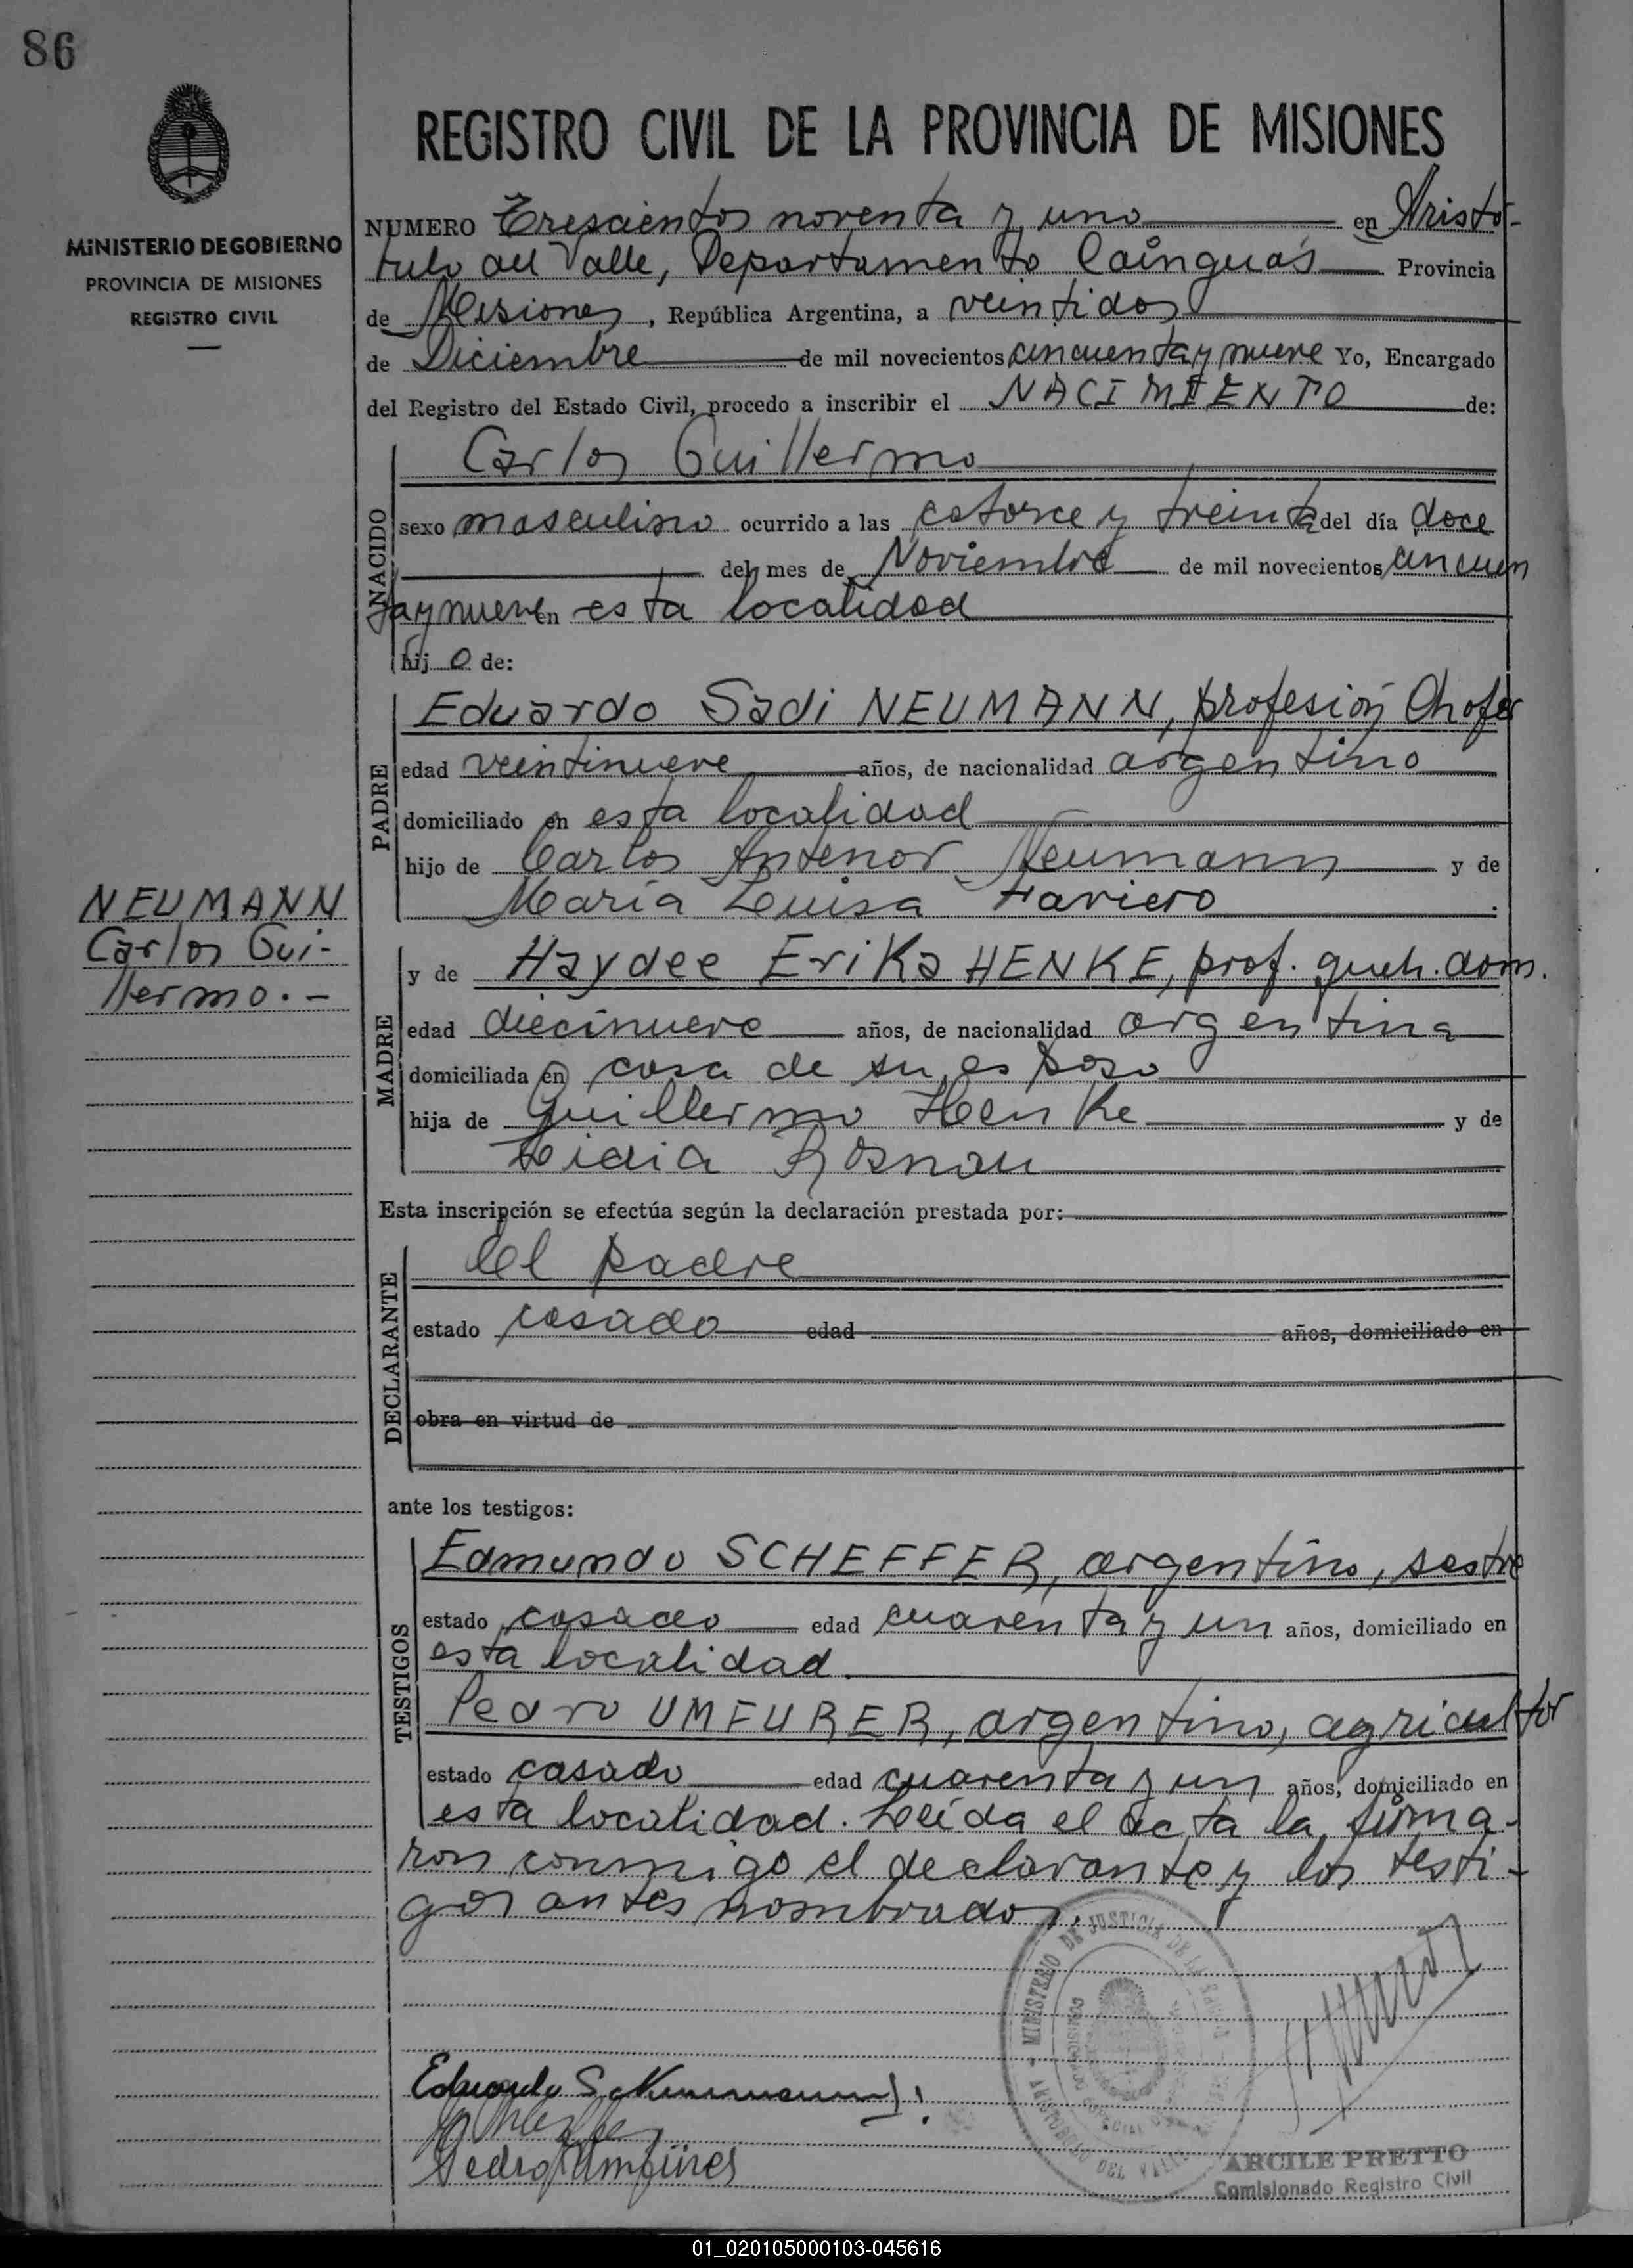 86
MINISTERIO DE GOBIERNO
PROVINCIA DE MISIONES
REGISTRO CIVIL
REGISTRO CIVIL DE LA PROVINCIA DE MISIONES
NUMERO Trescientos noventa y uno en Aristó-
bulo del Valle, Departamento Cainguás Provincia
de Misiones, República Argentina, a veintidos
de Diciembre de mil novecientos cincuenta y nueve Yo, Encargado
del Registro del Estado Civil, procedo a inscribir el NACIMIENTO de:
NACIDO
Carlos Guillermo
sexo masculino ocurrido a las catorce y treinta del día doce
del mes de Noviembre de mil novecientos cincuen
ta y nueve en esta localidad
hijo de:
PADRE
Eduardo Sadi NEUMANN, profesión Chofer
edad veintinueve años, de nacionalidad argentino
domiciliado en esta localidad
hijo de Carlos Antenor Neumann y de
María Luisa Faviero
NEUMANN
Carlos Gui-
llermo.-
MADRE
y de Haydee Erika HENKE, prof. queh. dom.
edad diecinueve años, de nacionalidad argentina
domiciliada en casa de su esposo
hija de Guillermo Henke y de
Lidia Rosnau
Esta inscripción se efectúa según la declaración prestada por:
DECLARANTE
El padre
estado casado edad años, domiciliado en
obra en virtud de
ante los testigos:
TESTIGOS
Edmundo SCHEFFER, argentino, sastre
estado casado edad cuarenta y un años, domiciliado en
esta localidad.
Pedro UMFURER, argentino, agricultor
estado casado edad cuarenta y un años, domiciliado en
esta localidad. Leída el acta la firma-
ron conmigo el declarante y los testi-
gos antes nombrados.
MINISTERIO DE JUSTICIA DE LA
ARISTOBULO DEL VALLE
Eduardo S. Neumann
Pedro
ARCILE PRETTO
Comisionado Registro Civil
01_020105000103-045616